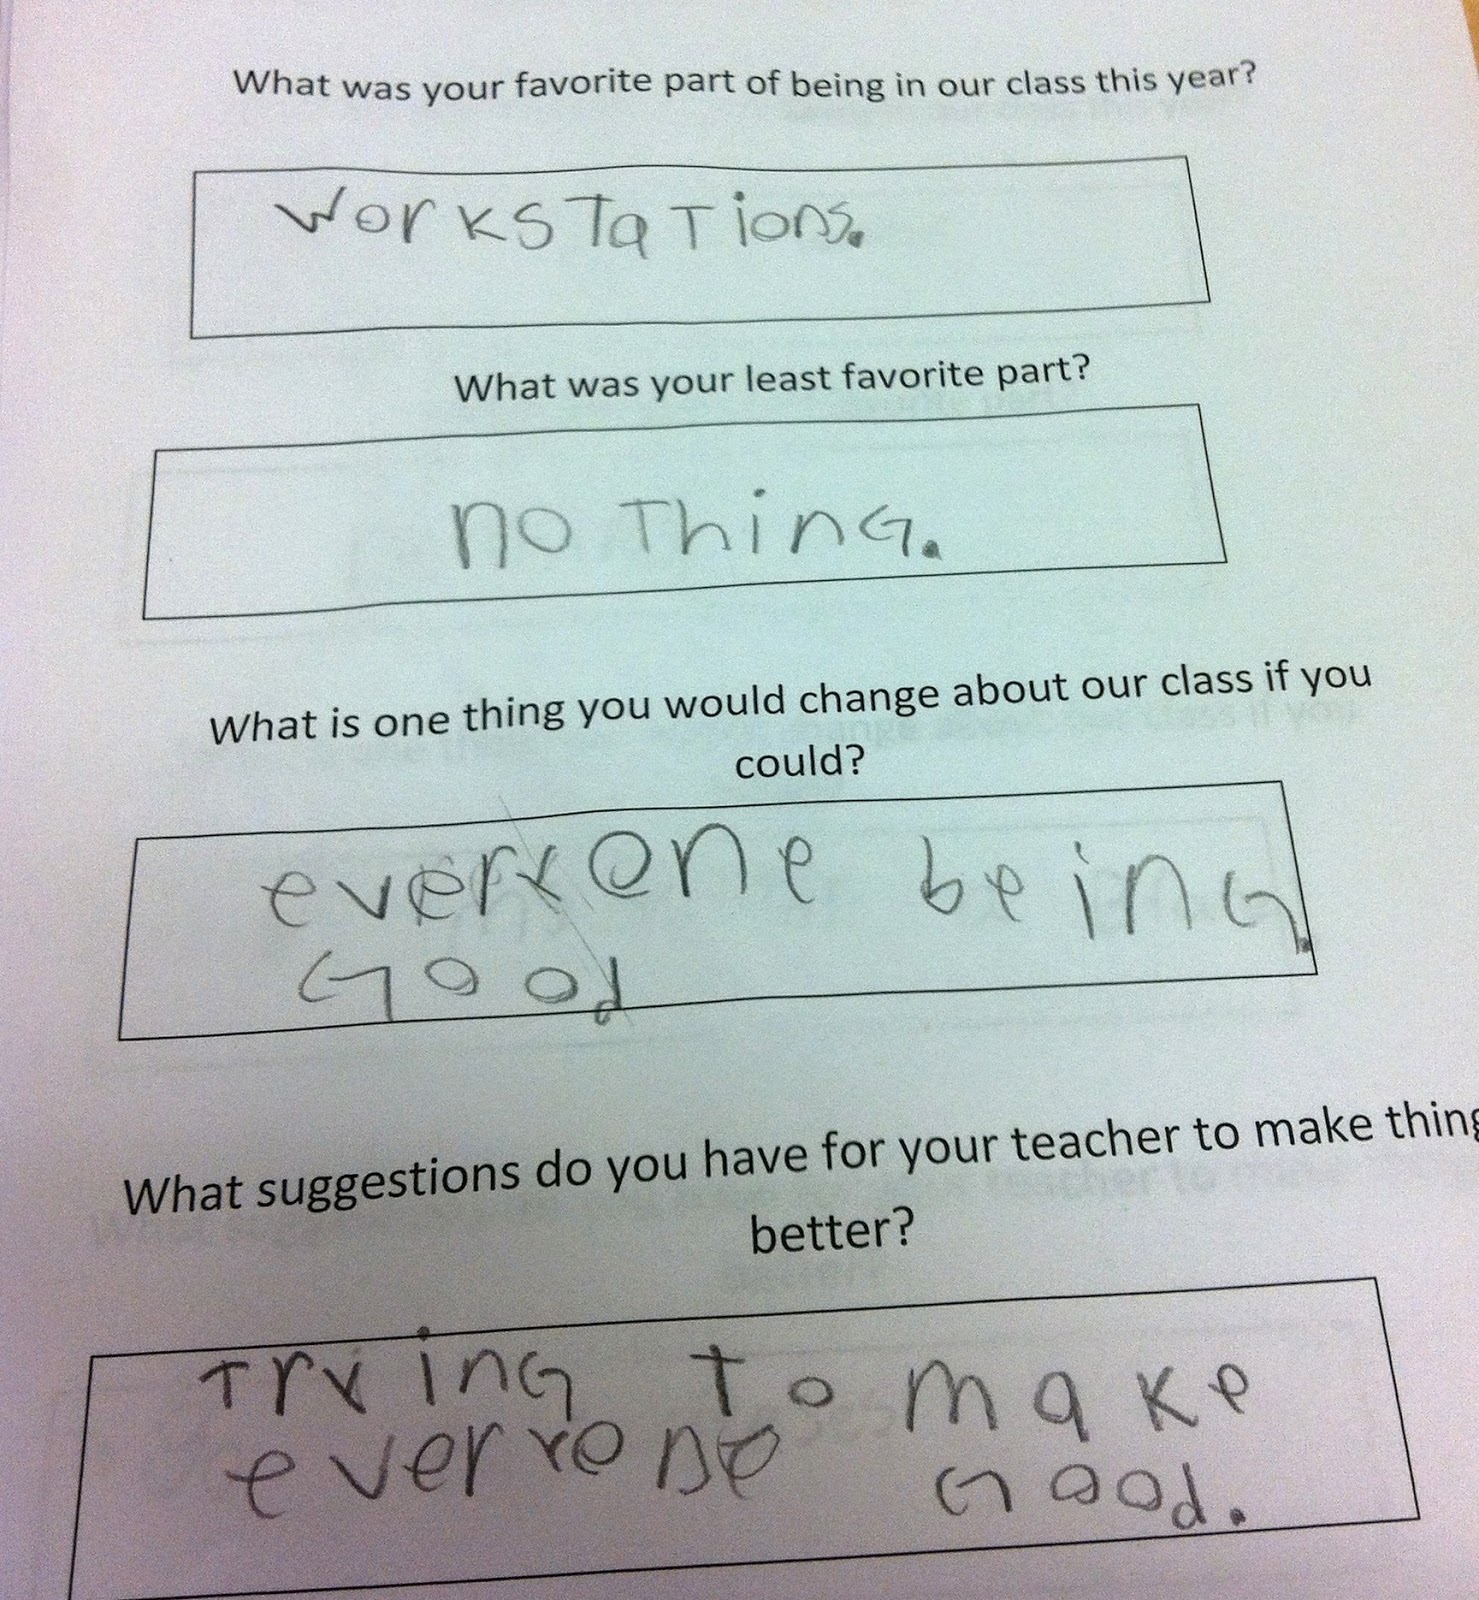 What was your favorite part of being in our class this year?
workstations.
What was your least favorite part?
no Thing.
What is one thing you would change about our class if you
could?
everyone being
Good.
What suggestions do you have for your teacher to make thing
better?
Trying to make
everyone Good.